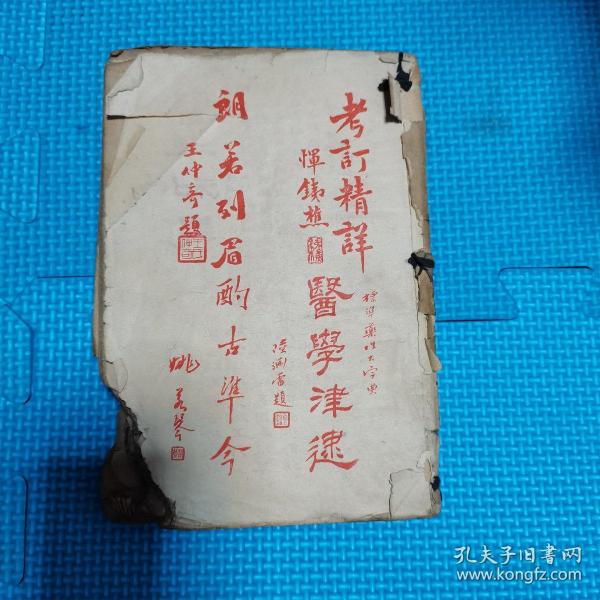 考訂精詳
惲鉄樵
標準藥性大字典
醫學津逮
陸淵雷題
朗若列眉
王仲奇題
酌古準今
姚若琴
孔夫子旧书网
www.kongfz.com